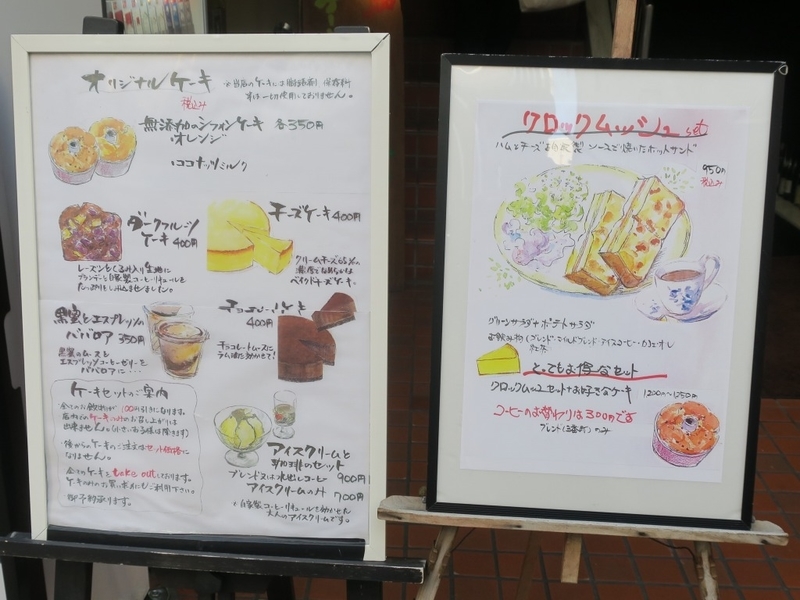 オリジナルケーキ
※当店のケーキには
は一切使用しておりません。
税込み
無添加のシフォンケーキ 各350円
オレンジ
ココナッツミルク
ダークフルーツ
ケーキ 400円
レーズンとくるみ入り生地に
ブランデーと自家製コーヒーリキュールを
たっぷりとしみ込ませました。
チーズケーキ 400円
クリームチーズ
濃厚でなめらかな
ベイクドチーズケーキ。
黒蜜とエスプレッソの
ババロア 350円
黒蜜のムースと
エスプレッソコーヒーゼリーを
ババロアに・・・
チョコレートケーキ
400円
チョコレートムースに
ラム酒を効かせて!
ケーキセットのご案内
全てのお飲物が100円引きになります。
店内でのケーキのみのお召し上がりは
出来ません。(小さいお子様は除きます)
後からのケーキのご注文はセット価格に
なりません。
全てのケーキをtake outしております。
ケーキのみのお買い求めにもご利用下さい。
御予約承ります。
アイスクリームと
珈琲のセット
ブレンド又は水出しコーヒー 900円
アイスクリームのみ 700円
自家製コーヒーリキュールを効かせた
大人のアイスクリームです。
クロックムッシュ set
ハムとチーズ 製 ソースで焼いたホットサンド
950円
税込み
グリーンサラダ+ポテトサラダ
お飲み物(ブレンド・マイルドブレンド・アイスコーヒー・カフェ・オ・レ
紅茶
とってもお得なセット
クロックムッシュセット+お好きなケーキ 1200円〜1250円
コーヒーのお替わりは300円です
ブレンド のみ